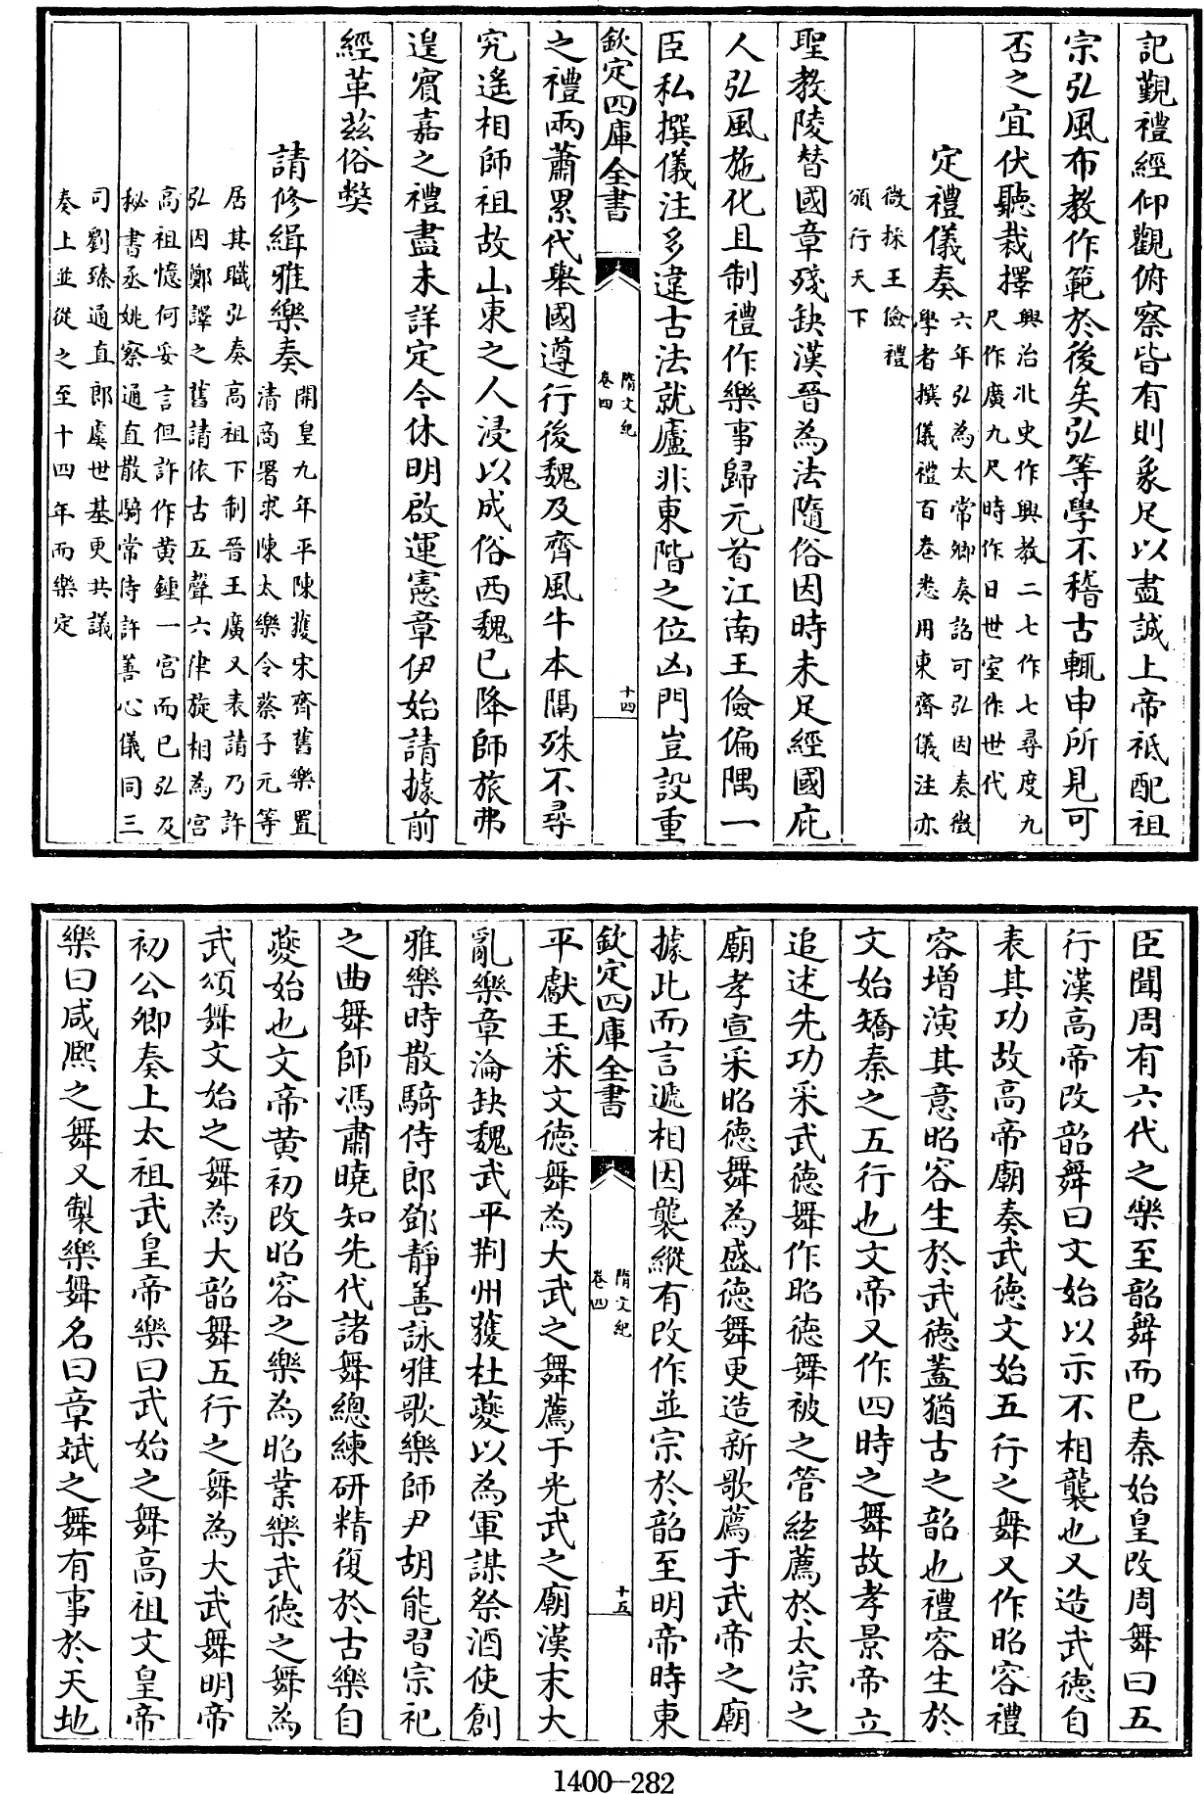 記覲禮經仰觀俯察皆有則象足以盡誠上帝祗配祖
宗弘風布教作範於後矣弘等學不稽古輒申所見可
否之宜伏聽裁擇興治北史作興教二七作七尋度九
尺作廣九尺時作日世室作世代
定禮儀奏六年弘為太常卿奏詔可弘因奏徵
學者撰儀禮百卷悉用東齊儀注亦
微採王儉禮
頒行天下
聖教陵替國章殘缺漢晉為法隨俗因時未足經國庇
人弘風施化且制禮作樂事歸元首江南王儉偏隅一
臣私撰儀注多違古法就廬非東階之位凶門豈設重
欽定四庫全書
隋文紀
卷四
十四
之禮兩蕭累代舉國遵行後魏及齊風牛本隔殊不尋
究遙相師祖故山東之人浸以成俗西魏已降師旅弗
遑賓嘉之禮盡未詳定今休明啟運憲章伊始請據前
經革茲俗弊
請修緝雅樂奏開皇九年平陳獲宋齊舊樂置
清商署求陳太樂令蔡子元等
居其職弘奏高祖下制晉王廣又表請乃許
弘因鄭譯之舊請依古五聲六律旋相為宮
高祖憶何妥言但許作黄鍾一宮而已弘及
秘書丞姚察通直散騎常侍許善心儀同三
司劉臻通直郎虞世基更共議
奏上並從之至十四年而樂定
臣聞周有六代之樂至韶舞而已秦始皇改周舞曰五
行漢高帝改韶舞曰文始以示不相襲也又造武德自
表其功故高帝廟奏武德文始五行之舞又作昭容禮
容增演其意昭容生於武德蓋猶古之韶也禮容生於
文始矯秦之五行也文帝又作四時之舞故孝景帝立
追述先功采武德舞作昭德舞被之管絃薦於太宗之
廟孝宣采昭德舞為盛德舞更造新歌薦于武帝之廟
據此而言遞相因襲縱有改作並宗於韶至明帝時東
欽定四庫全書
隋文紀
卷四
十五
平獻王采文德舞為大武之舞薦于光武之廟漢末大
亂樂章淪缺魏武平荆州獲杜夔以為軍謀祭酒使創
雅樂時散騎侍郎鄧靜善詠雅歌樂師尹胡能習宗祀
之曲舞師馮肅曉知先代諸舞總練研精復於古樂自
夔始也文帝黄初改昭容之樂為昭業樂武德之舞為
武頌舞文始之舞為大韶舞五行之舞為大武舞明帝
初公卿奏上太祖武皇帝樂曰武始之舞高祖文皇帝
樂曰咸熙之舞又製樂舞名曰章斌之舞有事於天地
1400-282